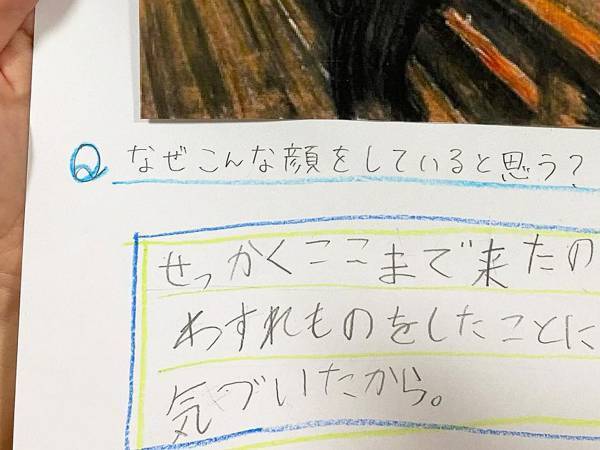 Q なぜこんな顔をしていると思う?
せっかくここまで来たの
わすれものをしたことに
気づいたから。